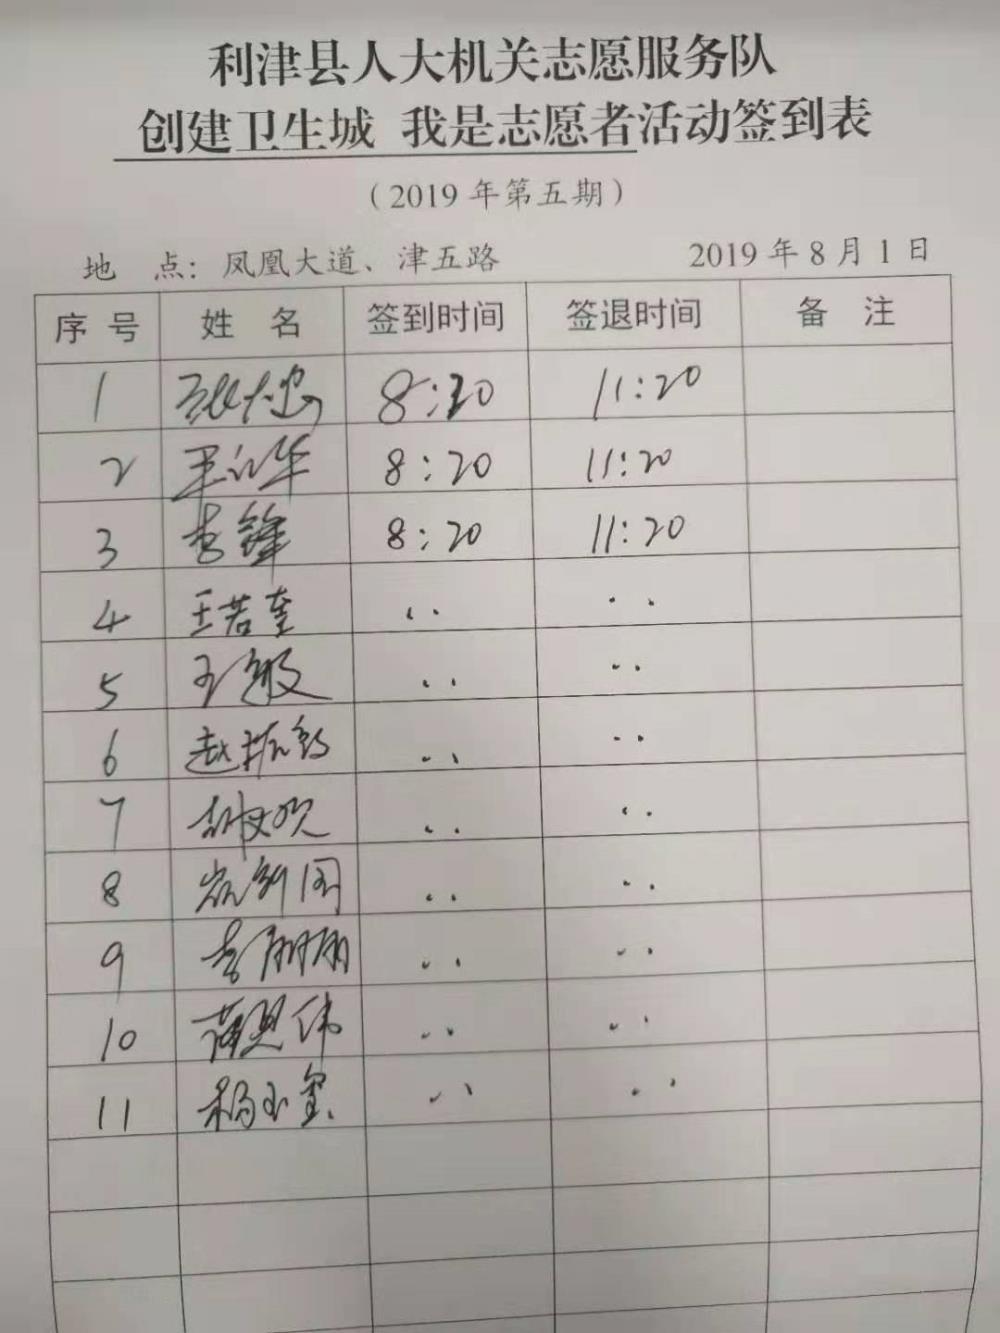 利津县人大机关志愿服务队
创建卫生城 我是志愿者活动签到表
（2019年第五期）
地 点：凤凰大道、津五路 2019年8月1日
序号 姓 名 签到时间 签退时间 备 注
1 8:20 11:20
2 8:20 11:20
3 李锋 8:20 11:20
4 王若奎 〃 〃
5 王敏 〃 〃
6 赵振 〃 〃
7 〃 〃
8 〃 〃
9 李朋朋 〃 〃
10 〃 〃
11 杨玉玺 〃 〃